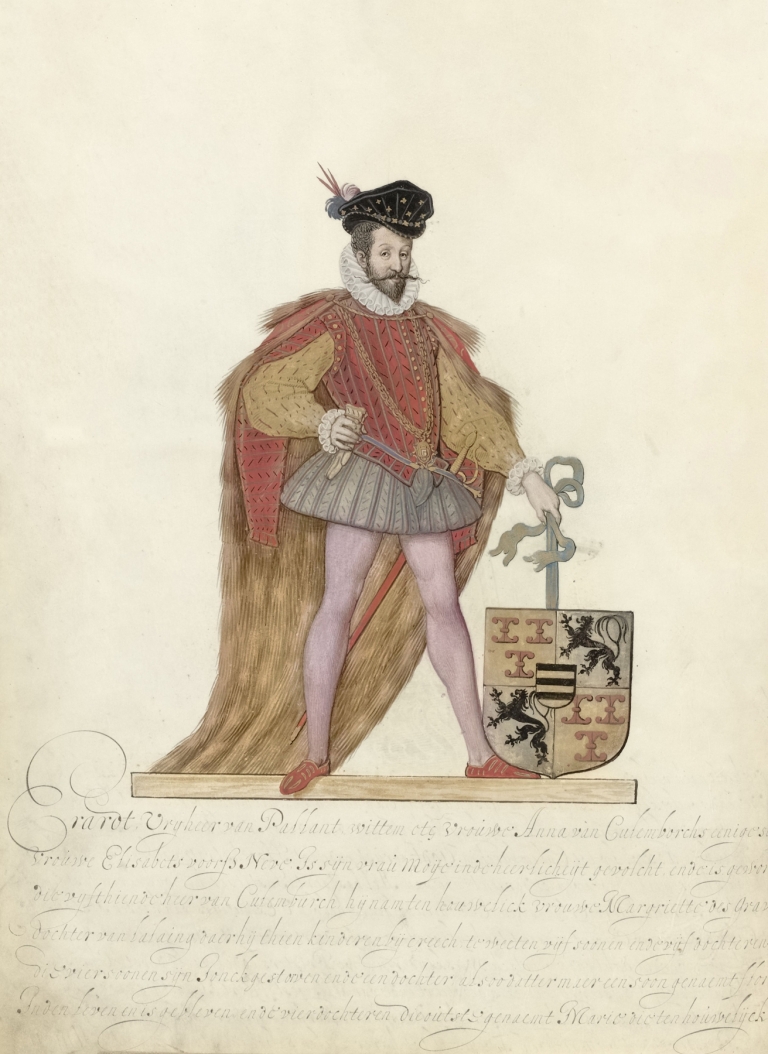 Erardt Vryheer van Pallant wittem etc Vrouwe Anna van Culemborchs eenige
Vrouwe Elisabets voorss Neve Is syn vrau Moye inde heerlicheijt gevolcht ende is
die vijfthiende heer van Culemburch hy nam ten houwelick Vrouwe Margriette des
dochter van Lalaing daer hij thien kinderen bij creech te weeten vijf soonen ende vijf dochteren
die vier soonen syn Jonck gestorven ende een dochter alsoo datter maer een soon genaemt
Inden leven en is gebleven ende vier dochteren die outste genaemt Marie die ten houwelijck